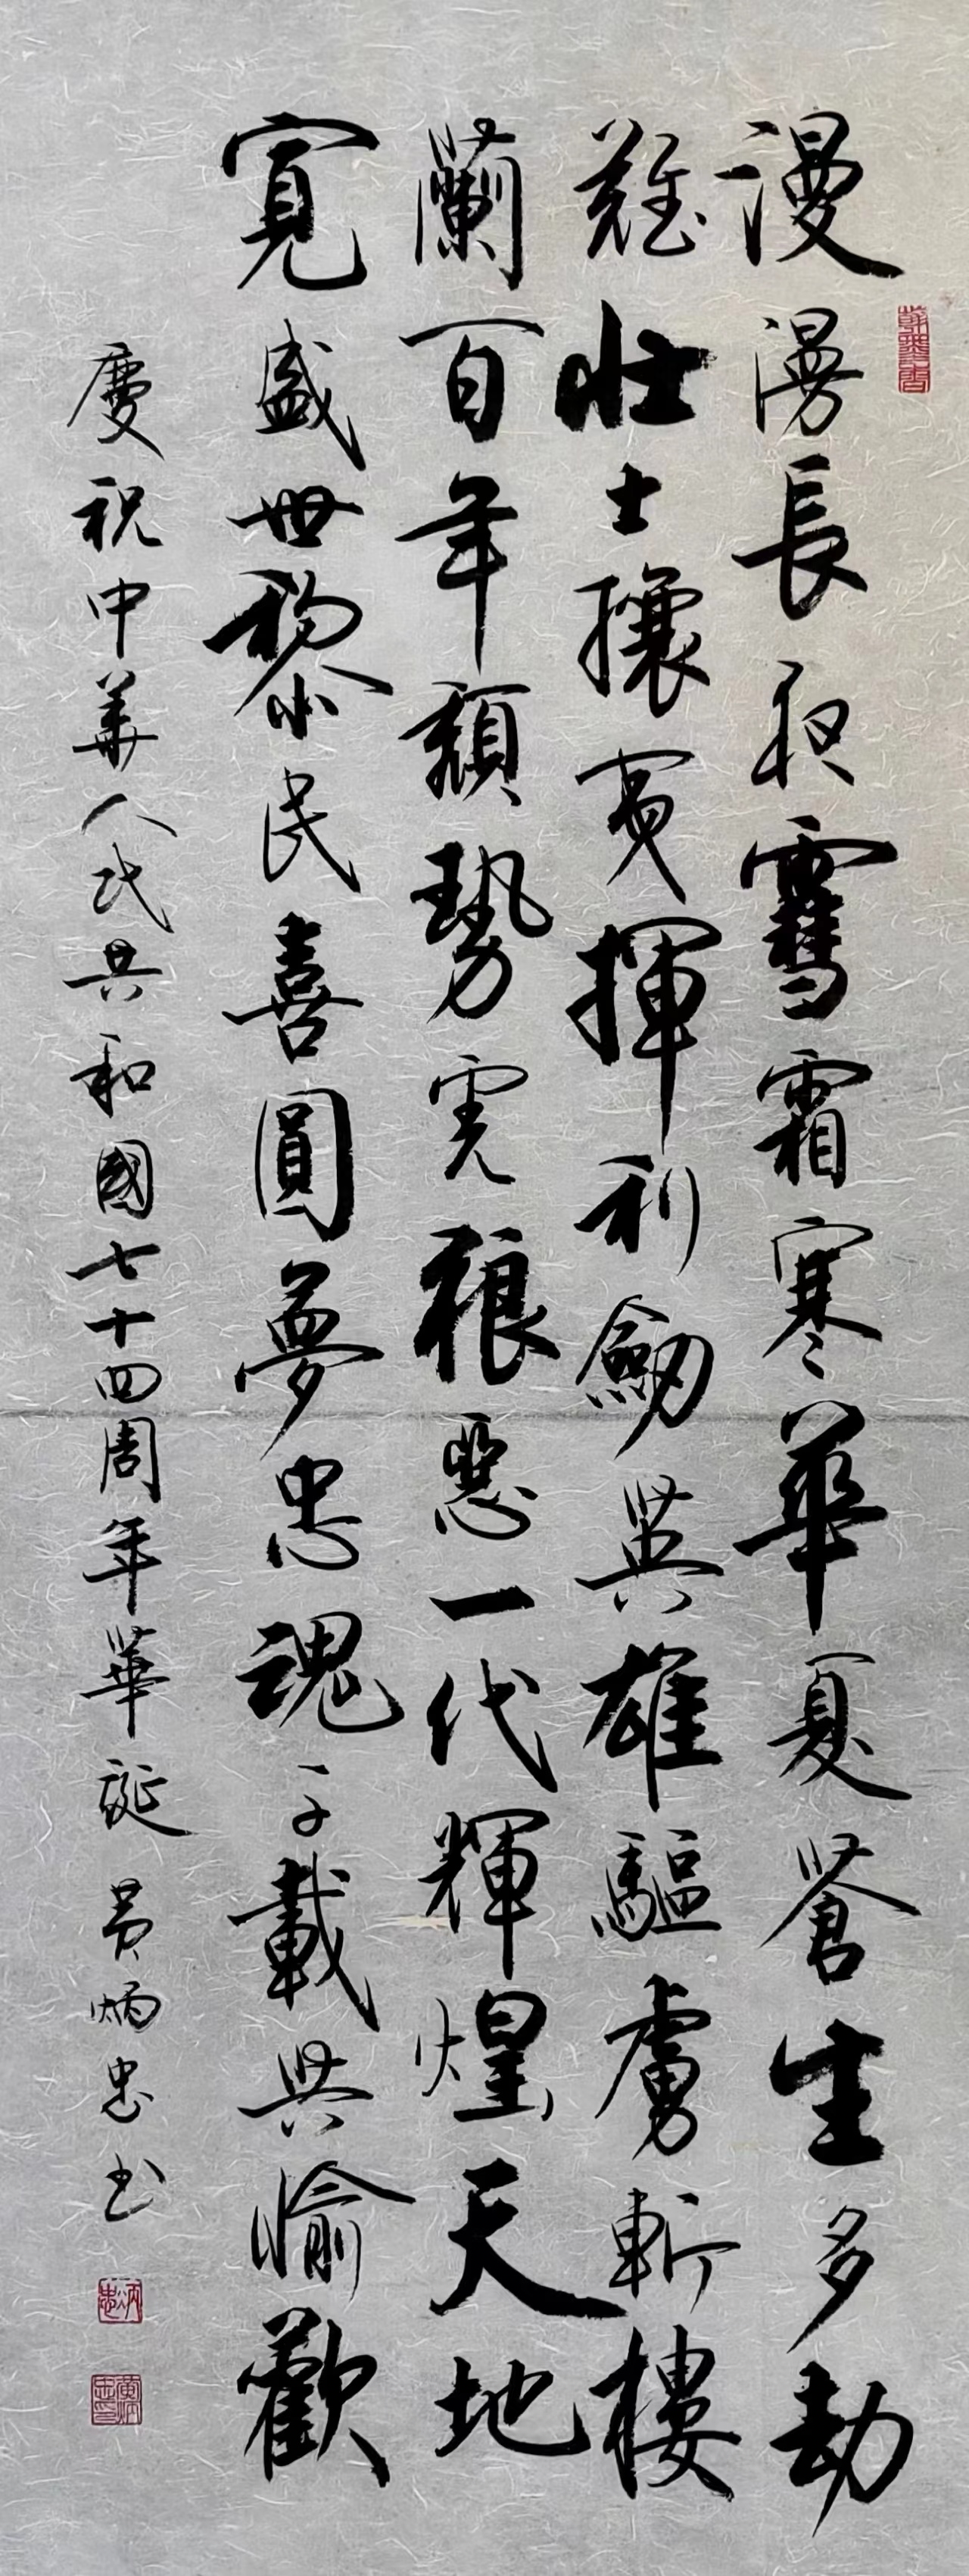 漫漫長夜雪霜寒華夏蒼生多劫
難壯士攘夷揮利劒英雄驅虜斬樓
蘭百年頹勢虎狼惡一代輝煌天地
寬盛世黎民喜圓夢忠魂千載共愉歡
慶祝中華人民共和國七十四周年華誕 黄炳忠书
炳忠
黄炳忠印